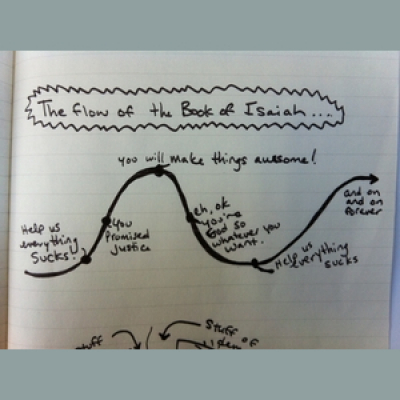 The flow of the Book of Isaiah...
you will make things awesome!
Help us
everything
Sucks!
You
Promised
justice
eh, ok
you're
God so
whatever you
want.
Help us
everything
sucks
and on
and on
forever
stuff
of